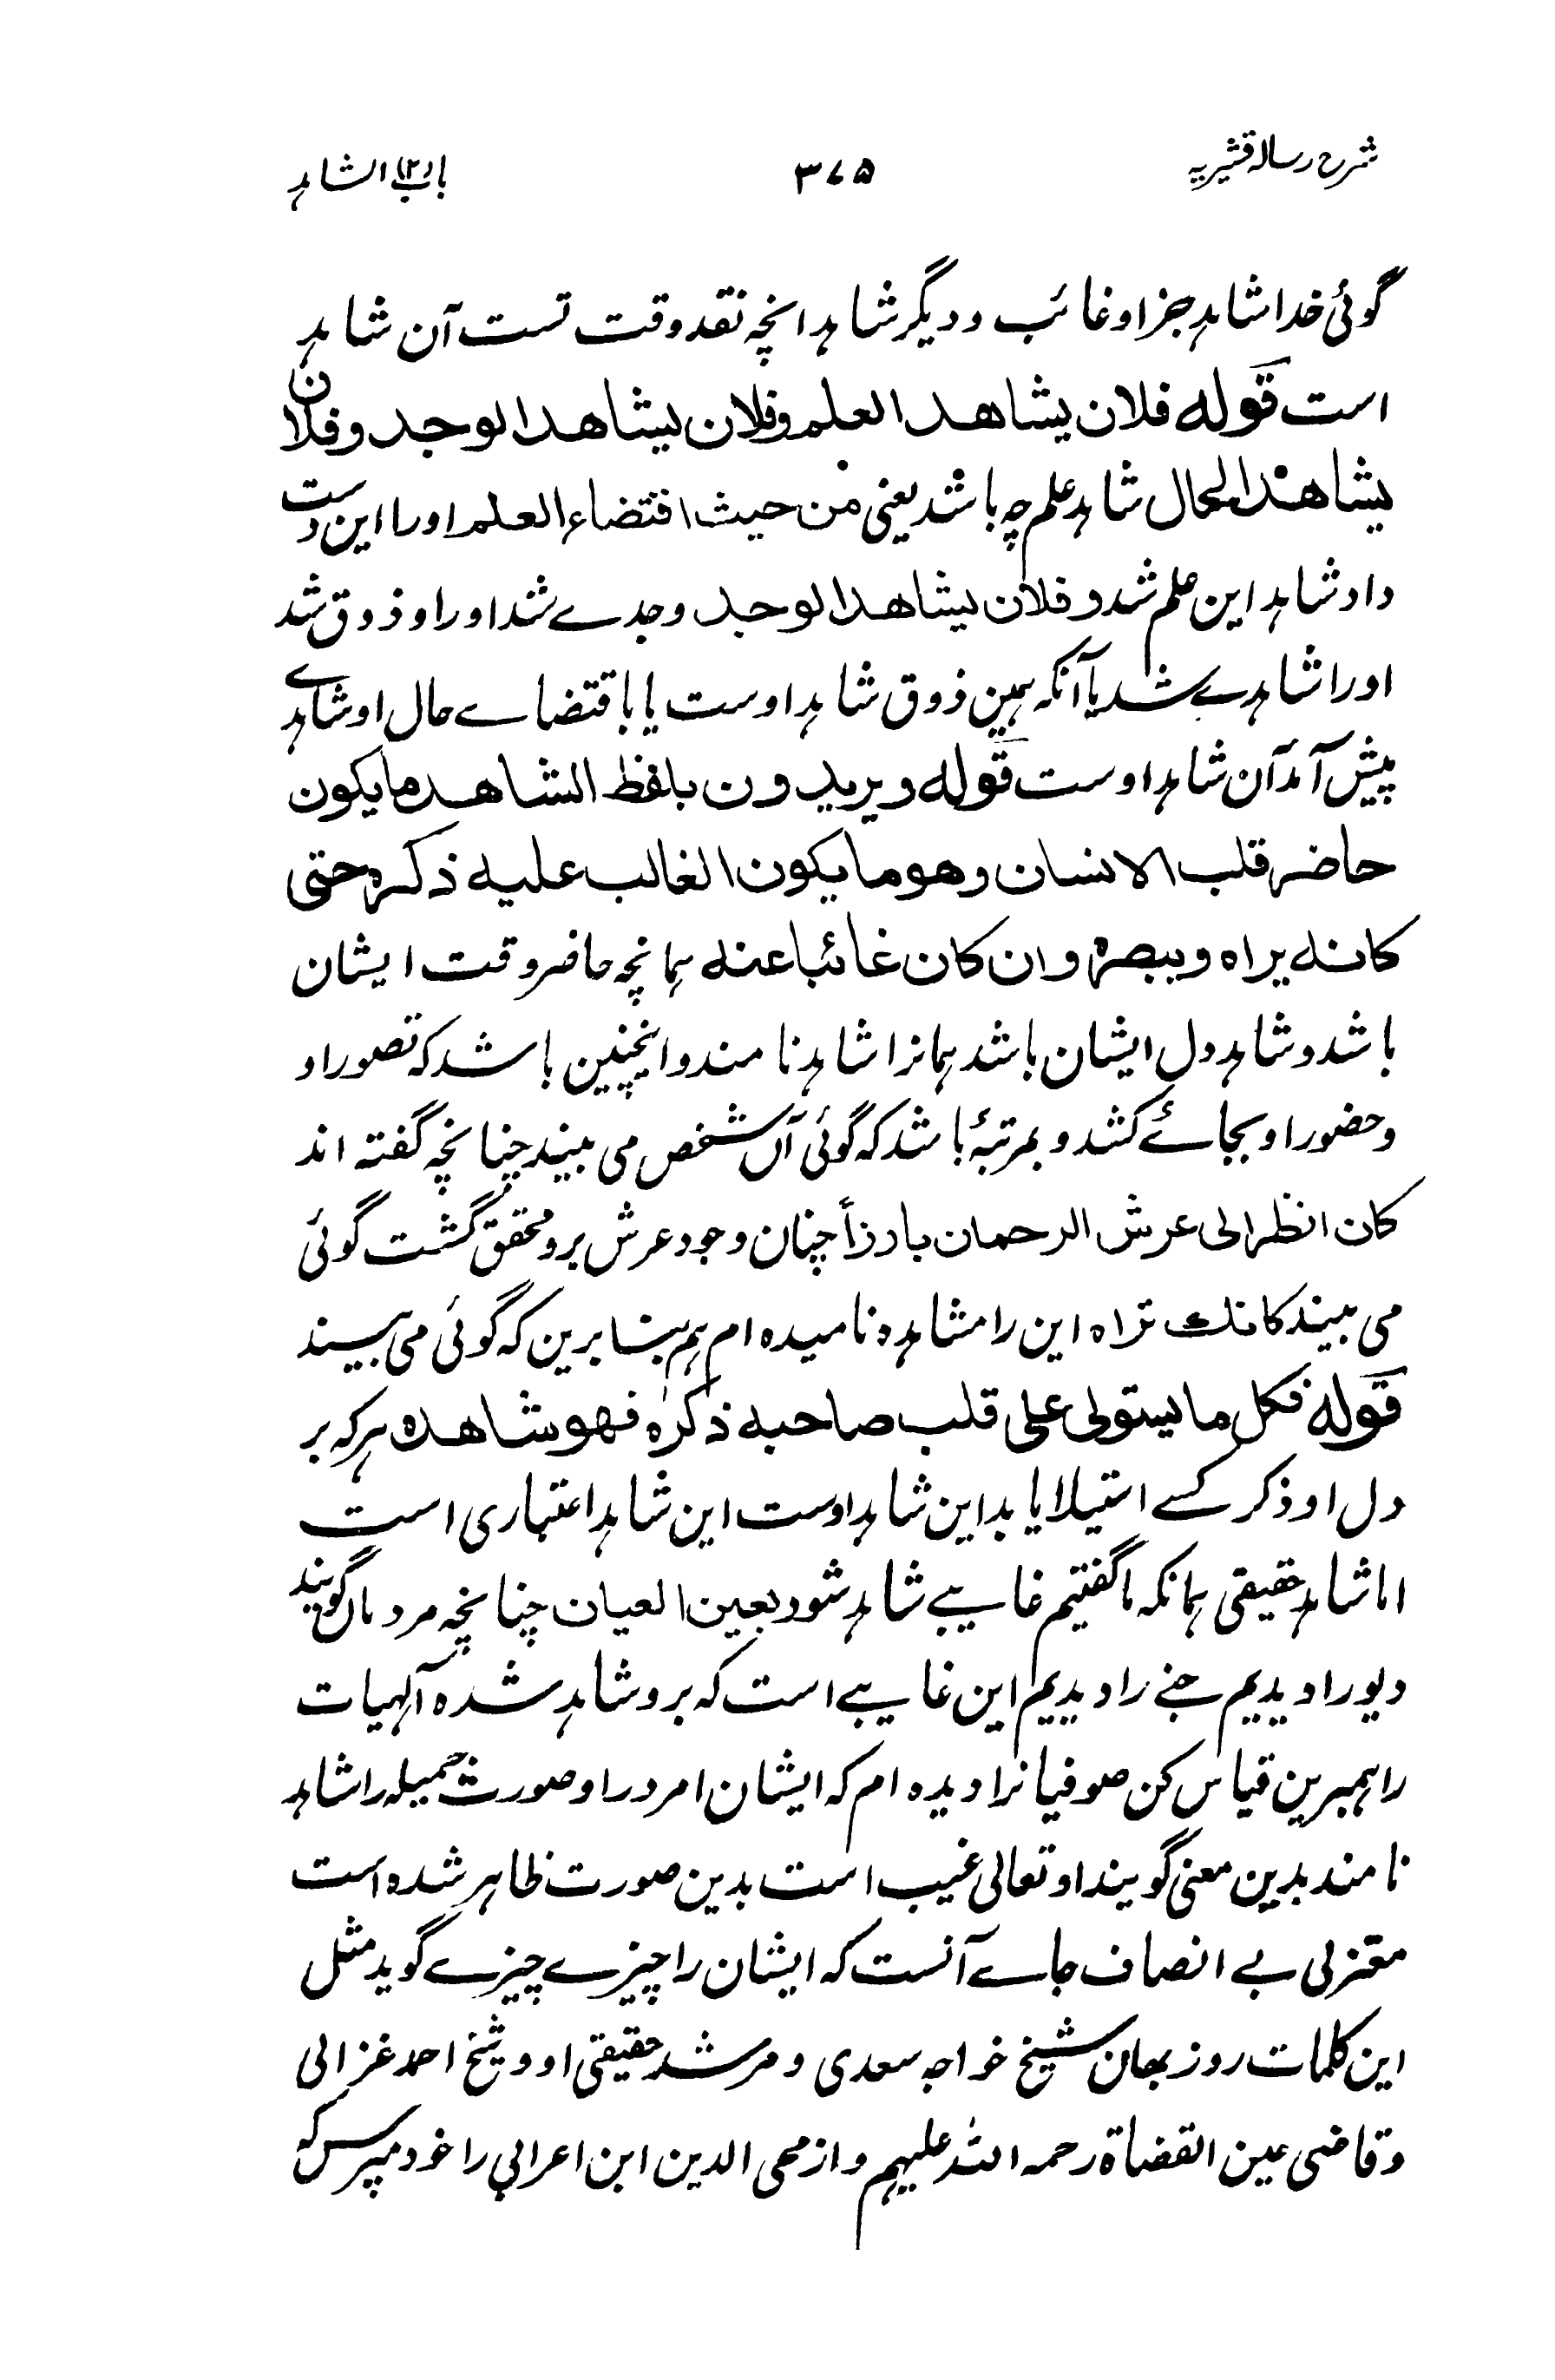 شرح رسالہ قشیریہ ۳۷۵ باب(۲) الشاہد
گوئی خدا شاہد جز او غائب و دیگر شاہد انچہ نقد وقت تست آن شاہد
است قوله فلان يشاهد العلم وفلان يشاهد الوجد وفلان
يشاهد الحال شاہد علم چہ باشد یعنی من حيث اقتضاء العلم اورا این دست
داد شاہد این علم شد و فلان يشاهد الوجد وجدے شد اورا و ذوق شد
اورا شاہدے شد یا آنکہ ہمین ذوق شاہد اوست یا باقتضاے حال او شاہدے
پیش آمد آن شاہد اوست قوله ويريدون بلفظ الشاهد ما يكون
حاضر قلب الانسان وهو ما يكون الغالب عليه ذكره حتى
كانه يراه ويبصره وان كان غائبا عنه ہمانچہ حاضر وقت ایشان
باشد و شاہد دل ایشان باشد ہمانرا شاہد نامند و اینچنین باشد کہ تصور او
و حضور او بجائے کشد و بمرتبۂ باشد کہ گوئی آں شخص می بیند چنانچہ گفتہ اند
كان انظر الى عرش الرحمان بارزاً چنان وجود عرش برو محقق گشت گوئی
می بیند كانك تراه این را مشاہدہ نامیدہ ام ہم بنا برین کہ گوئی می بیند
قوله فكل ما يستولى على قلب صاحبه ذكره فهو شاهده ہر کہ بر
دل او ذکر کسے استیلا یابد این شاہد اوست این شاہد اعتباری است
اما شاہد حقیقی ہمانکہ ما گفتیم غایبے شاہد شود بعين العيان چنانچہ مردماں گویند
دیو را دیدیم جنے را دیدیم این غایبے است کہ برو شاہد شدہ آلہیات
را ہمبرین قیاس کن صوفیانرا دیدہ ام کہ ایشان امرد را و صورت جمیلہ را شاہد
نامند بدین معنی گویند او تعالی غیب است بدین صورت ظاہر شدہ است
معتزلی بے انصاف جاے آنست کہ ایشان را چیزے چیزے گوید مثل
این کلمات روزبہان شیخ خواجہ سعدی و مرشد حقیقی او و شیخ احمد غزالی
و قاضی عین القضاۃ رحمہ اللہ علیہم و از محی الدین ابن اعرابی را خود مپرس کہ